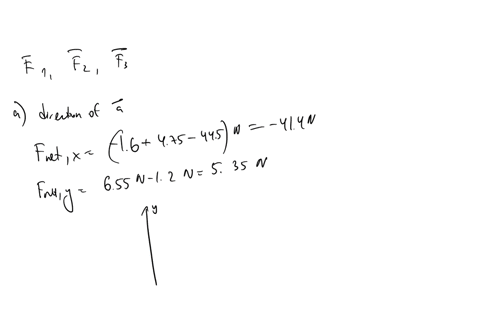 F̅₁, F̅₂, F̅₃
a) direction of a̅
Fnet,x = (-1.6 + 4.75 - 44.5) N = -41.4 N
Fnet,y = 6.55 N - 1.2 N = 5.35 N
y